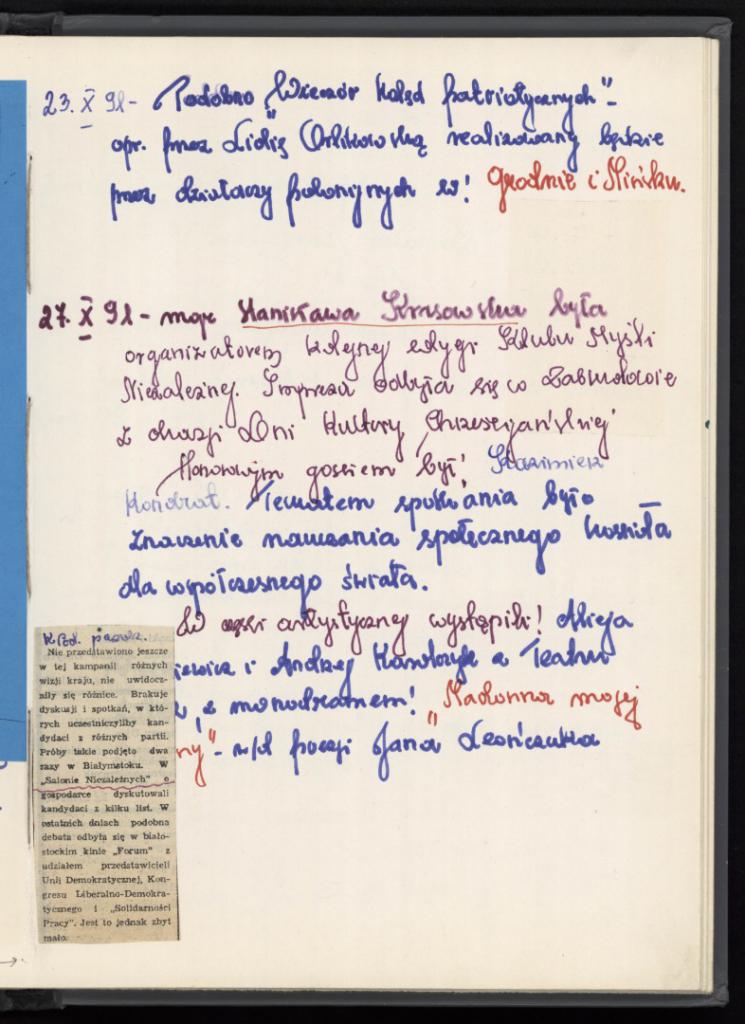 23. X 91 - Podobno „Wieczór kolęd patriotycznych” -
opr. przez Lidię Orlikowską realizowany będzie
przez działaczy polonijnych w! Grodnie i Mińsku.
27. X 91 - mgr Stanisława Krasowska była
organizatorem kolejnej edycji Klubu Myśli
Niezależnej. Impreza odbyła się w Zabłudowie
z okazji Dni Kultury Chrześcijańskiej
Honorowym gościem był! Kazimierz
Kondrat. Tematem spotkania było
znaczenie nauczania społecznego Kościoła
dla współczesnego świata.
W części artystycznej wystąpili! Alicja
iewicz i Andrzej z Teatru
z monodramem! „Madonna mojej
ny” - w/d poezji Jana Leończuka
Nie przedstawiono jeszcze
w tej kampanii różnych
wizji kraju, nie uwidocz-
niły się różnice. Brakuje
dyskusji i spotkań, w któ-
rych uczestniczyliby kan-
dydaci z różnych partii.
Próby takie podjęto dwa
razy w Białymstoku. W
„Salonie Niezależnych” o
gospodarce dyskutowali
kandydaci z kilku list. W
ostatnich dniach podobna
debata odbyła się w biało-
stockim kinie „Forum” z
udziałem przedstawicieli
Unii Demokratycznej, Kon-
gresu Liberalno-Demokra-
tycznego i „Solidarności
Pracy”. Jest to jednak zbyt
mało.